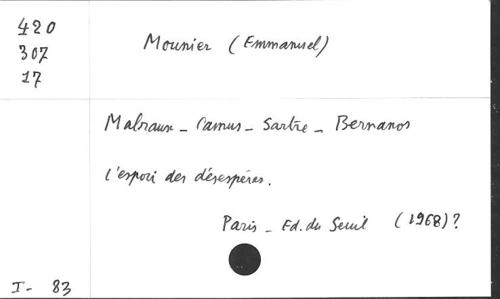 420
307
17
Mounier (Emmanuel)
Malraux - Camus - Sartre - Bernanos
l'espoir des désespérés.
Paris - Ed. du Seuil (1968)?
I- 83